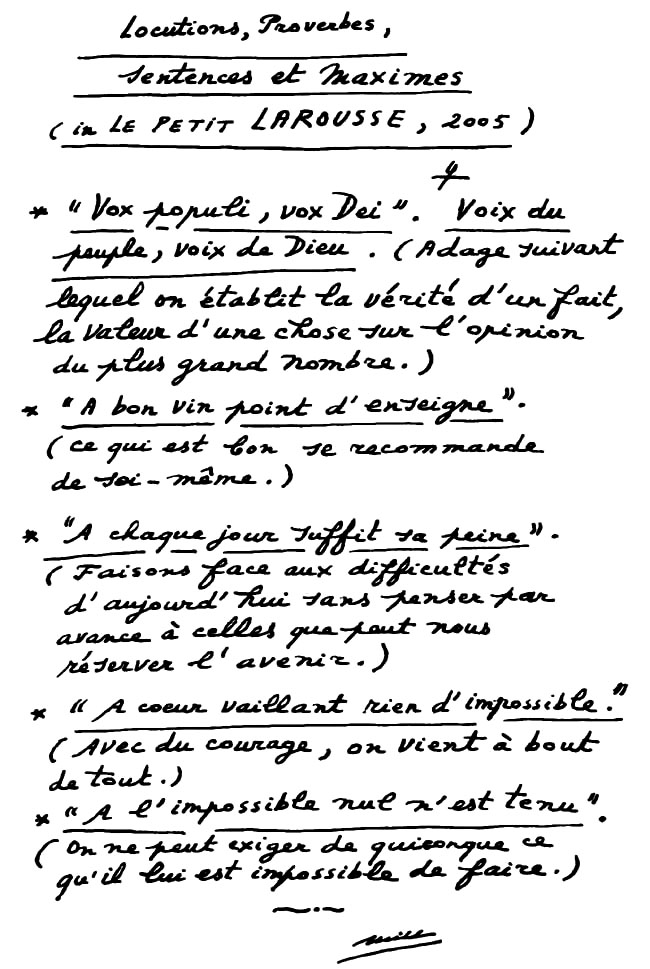 Locutions, Proverbes,
Sentences et Maximes
(in LE PETIT LAROUSSE, 2005)
* "Vox populi, vox Dei". Voix du
peuple, voix de Dieu. (Adage suivant
lequel on établit la vérité d'un fait,
la valeur d'une chose sur l'opinion
du plus grand nombre.)
* "A bon vin point d'enseigne".
(ce qui est bon se recommande
de soi-même.)
* "A chaque jour suffit sa peine".
(Faisons face aux difficultés
d'aujourd'hui sans penser par
avance à celles que peut nous
réserver l'avenir.)
* "A coeur vaillant rien d'impossible."
(Avec du courage, on vient à bout
de tout.)
* "A l'impossible nul n'est tenu".
(On ne peut exiger de quiconque ce
qu'il lui est impossible de faire.)